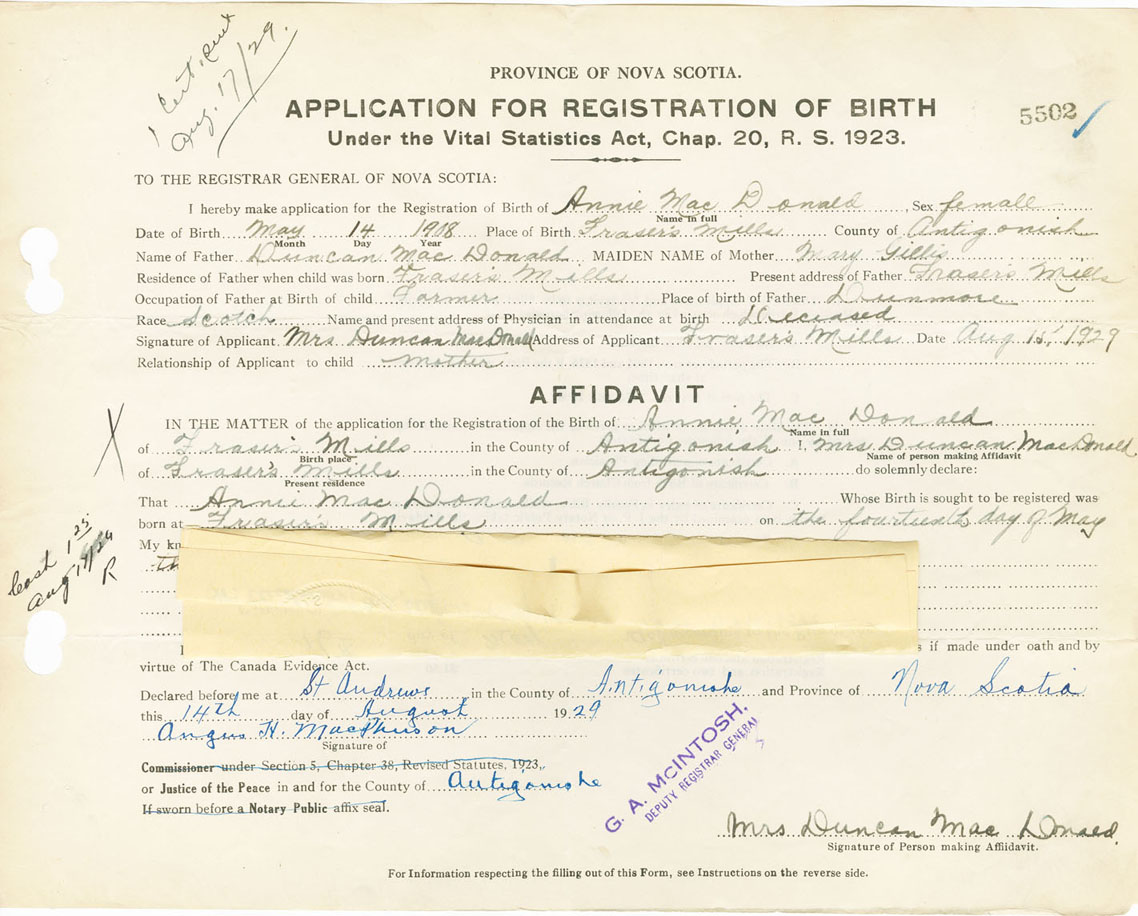 1 Cert. sent
Aug. 17/29.
PROVINCE OF NOVA SCOTIA.
APPLICATION FOR REGISTRATION OF BIRTH
5502
Under the Vital Statistics Act, Chap. 20, R. S. 1923.
TO THE REGISTRAR GENERAL OF NOVA SCOTIA:
I hereby make application for the Registration of Birth of Annie Mac Donald Sex female
Name in full
Date of Birth May 14 1908 Place of Birth Fraser's Mills County of Antigonish
Month Day Year
Name of Father Duncan Mac Donald MAIDEN NAME of Mother Mary Gillis
Residence of Father when child was born Fraser's Mills Present address of Father Fraser's Mills
Occupation of Father at Birth of child Farmer Place of birth of Father Dunmore
Race Scotch Name and present address of Physician in attendance at birth Deceased
Signature of Applicant Mrs Duncan MacDonald Address of Applicant Fraser's Mills Date Aug 15, 1929
Relationship of Applicant to child Mother
AFFIDAVIT
IN THE MATTER of the application for the Registration of the Birth of Annie Mac Donald
Name in full
of Fraser's Mills in the County of Antigonish I, Mrs. Duncan MacDonald
Birth place Name of person making Affidavit
of Fraser's Mills in the County of Antigonish do solemnly declare:
Present residence
That Annie Mac Donald Whose Birth is sought to be registered was
born at Fraser's Mills on the fourteenth day of May
My kn
th
Cash 1 25
Aug 17/29
R
I s if made under oath and by
virtue of The Canada Evidence Act.
Declared before me at St Andrews in the County of Antigonishe and Province of Nova Scotia
this 14th day of August 1929
Angus H. MacPherson
Signature of
Commissioner under Section 5, Chapter 38, Revised Statutes, 1923,
or Justice of the Peace in and for the County of Antigonishe
If sworn before a Notary Public affix seal.
G. A. McINTOSH.
DEPUTY REGISTRAR GENERAL
Mrs Duncan Mac Donald.
Signature of Person making Affidavit.
For Information respecting the filling out of this Form, see Instructions on the reverse side.